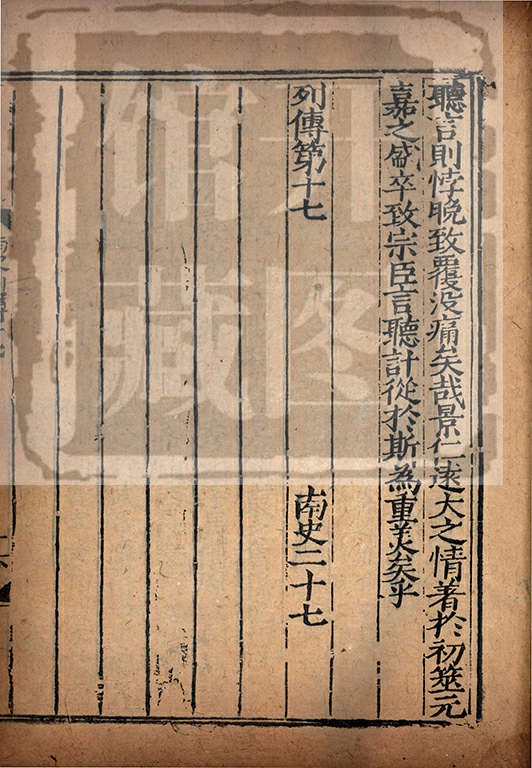 聽言則悖晚致覆没痛矣哉景仁遠大之情著於初筮元
嘉之盛卒致宗臣言聽計從於斯為重美矣乎
列傳第十七
南史二十七